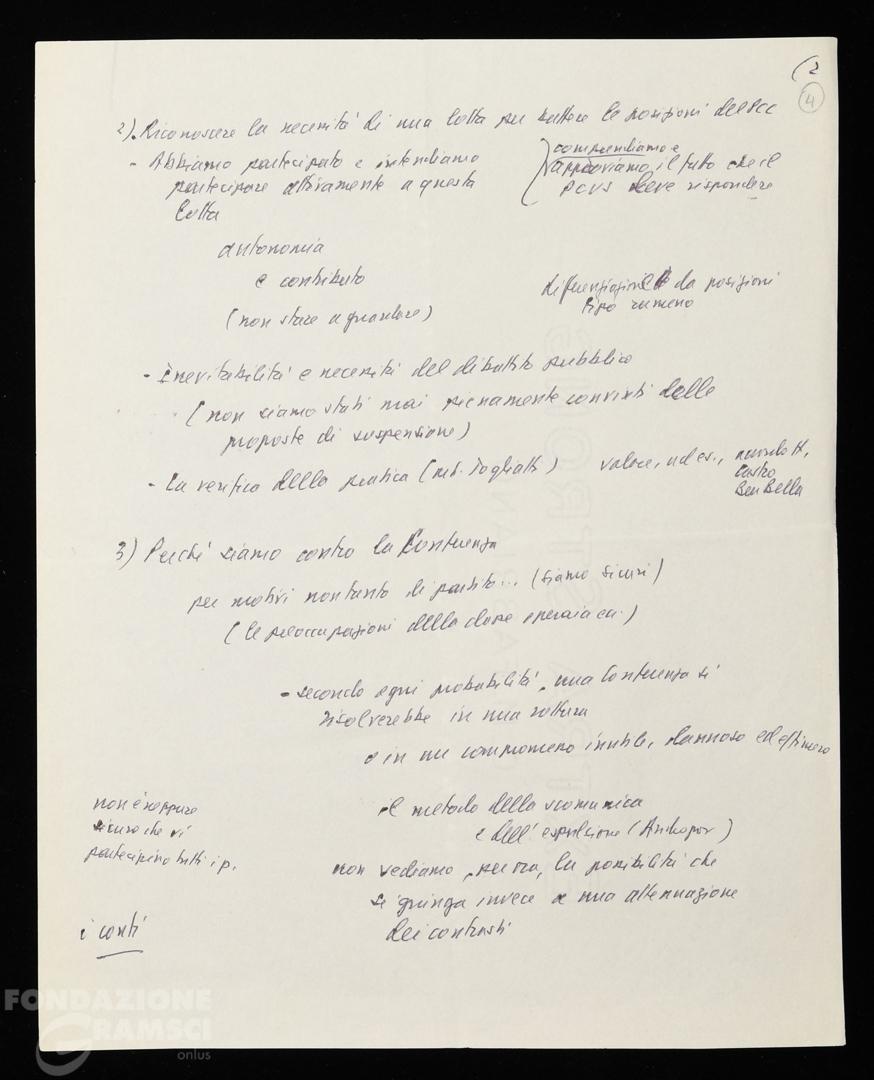 (2
4
2). Riconoscere la necessità di una lotta per battere le posizioni del PCC
- Abbiamo partecipato e intendiamo
partecipare attivamente a questa
lotta
comprendiamo e
approviamo il fatto che il
PCUS deve rispondere
autonomia
e contributo
(non stare a guardare)
differenziazione da posizioni
tipo rumeno
- Inevitabilità e necessità del dibattito pubblico
(non siamo stati mai pienamente convinti delle
proposte di suspensione)
- La verifica della pratica (int. Togliatti) valore, ad es.,
Castro
Ben Bella
3) Perché siamo contro la Conferenza
per motivi non tanto di partito... (siamo sicuri)
(le preoccupazioni della classe operaia ecc.)
- secondo ogni probabilità, una Conferenza si
risolverebbe in una rottura
o in un compromesso inutile, dannoso ed effimero
non è neppure
sicuro che vi
partecipino tutti i p.
il metodo della scomunica
e dell'espulsione (Andropov)
non vediamo, per ora, la possibilità che
si giunga invece a una attenuazione
dei contrasti
i conti
FONDAZIONE
GRAMSCI
onlus